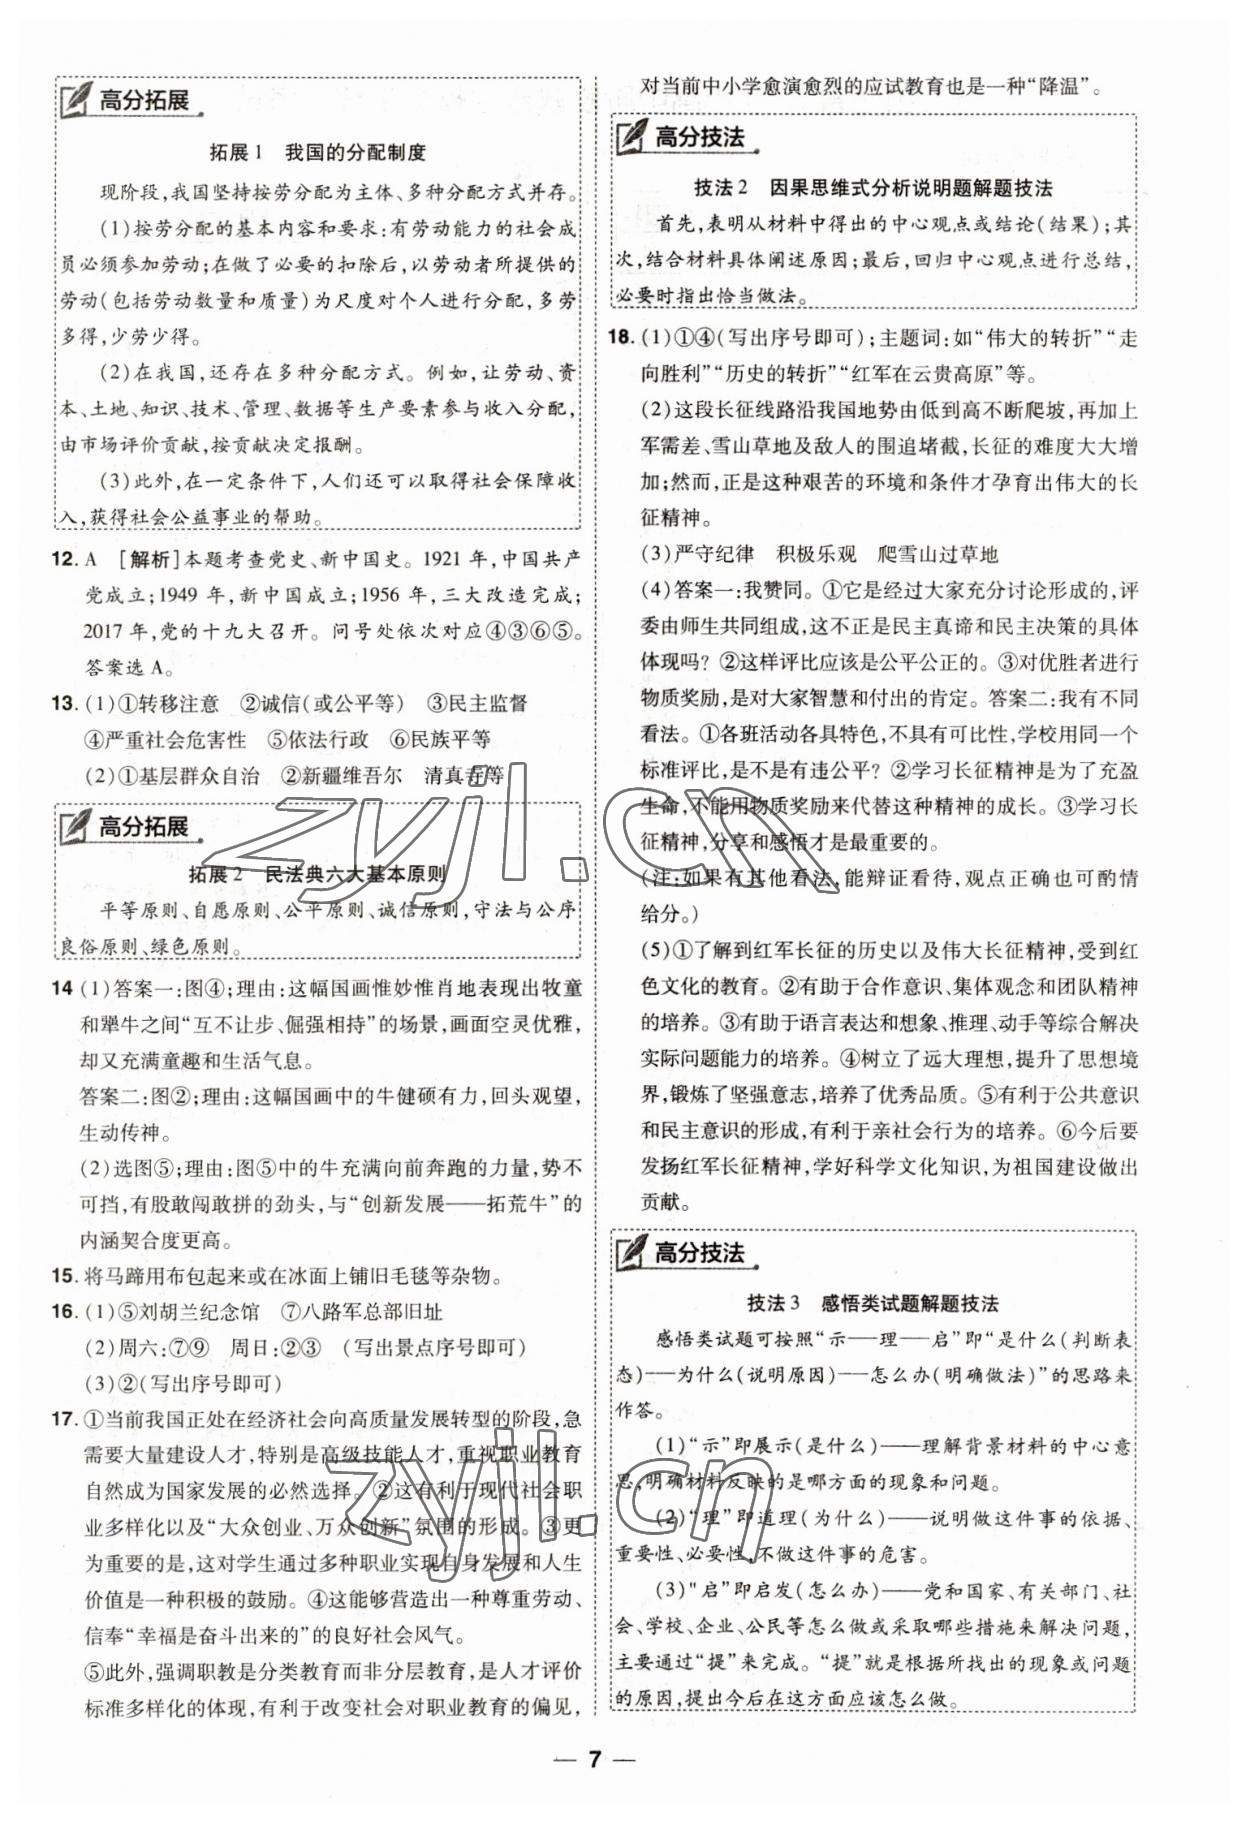 高分拓展
拓展1 我国的分配制度
现阶段,我国坚持按劳分配为主体、多种分配方式并存。
(1)按劳分配的基本内容和要求:有劳动能力的社会成
员必须参加劳动;在做了必要的扣除后,以劳动者所提供的
劳动(包括劳动数量和质量)为尺度对个人进行分配,多劳
多得,少劳少得。
(2)在我国,还存在多种分配方式。例如,让劳动、资
本、土地、知识、技术、管理、数据等生产要素参与收入分配,
由市场评价贡献,按贡献决定报酬。
(3)此外,在一定条件下,人们还可以取得社会保障收
入,获得社会公益事业的帮助。
12. A [解析]本题考查党史、新中国史。1921年,中国共产
党成立;1949年,新中国成立;1956年,三大改造完成;
2017年,党的十九大召开。问号处依次对应④③⑥⑤。
答案选A。
13. (1)①转移注意 ②诚信(或公平等) ③民主监督
④严重社会危害性 ⑤依法行政 ⑥民族平等
(2)①基层群众自治 ②新疆维吾尔 清真寺等
高分拓展
拓展2 民法典六大基本原则
平等原则、自愿原则、公平原则、诚信原则,守法与公序
良俗原则、绿色原则。
14 (1)答案一:图④;理由:这幅国画惟妙惟肖地表现出牧童
和犟牛之间“互不让步、倔强相持”的场景,画面空灵优雅,
却又充满童趣和生活气息。
答案二:图②;理由:这幅国画中的牛健硕有力,回头观望,
生动传神。
(2)选图⑤;理由:图⑤中的牛充满向前奔跑的力量,势不
可挡,有股敢闯敢拼的劲头,与“创新发展——拓荒牛”的
内涵契合度更高。
15. 将马蹄用布包起来或在冰面上铺旧毛毯等杂物。
16. (1)⑤刘胡兰纪念馆 ⑦八路军总部旧址
(2)周六:⑦⑨ 周日:②③ (写出景点序号即可)
(3)②(写出序号即可)
17. ①当前我国正处在经济社会向高质量发展转型的阶段,急
需要大量建设人才,特别是高级技能人才,重视职业教育
自然成为国家发展的必然选择。②这有利于现代社会职
业多样化以及“大众创业、万众创新”氛围的形成。③更
为重要的是,这对学生通过多种职业实现自身发展和人生
价值是一种积极的鼓励。④这能够营造出一种尊重劳动、
信奉“幸福是奋斗出来的”的良好社会风气。
⑤此外,强调职教是分类教育而非分层教育,是人才评价
标准多样化的体现,有利于改变社会对职业教育的偏见,
对当前中小学愈演愈烈的应试教育也是一种“降温”。
高分技法
技法2 因果思维式分析说明题解题技法
首先,表明从材料中得出的中心观点或结论(结果);其
次,结合材料具体阐述原因;最后,回归中心观点进行总结,
必要时指出恰当做法。
18. (1)①④(写出序号即可);主题词:如“伟大的转折”“走
向胜利”“历史的转折”“红军在云贵高原”等。
(2)这段长征线路沿我国地势由低到高不断爬坡,再加上
军需差、雪山草地及敌人的围追堵截,长征的难度大大增
加;然而,正是这种艰苦的环境和条件才孕育出伟大的长
征精神。
(3)严守纪律 积极乐观 爬雪山过草地
(4)答案一:我赞同。①它是经过大家充分讨论形成的,评
委由师生共同组成,这不正是民主真谛和民主决策的具体
体现吗?②这样评比应该是公平公正的。③对优胜者进行
物质奖励,是对大家智慧和付出的肯定。答案二:我有不同
看法。①各班活动各具特色,不具有可比性,学校用同一个
标准评比,是不是有违公平?②学习长征精神是为了充盈
生命,不能用物质奖励来代替这种精神的成长。③学习长
征精神,分享和感悟才是最重要的。
(注:如果有其他看法,能辩证看待,观点正确也可酌情
给分。)
(5)①了解到红军长征的历史以及伟大长征精神,受到红
色文化的教育。②有助于合作意识、集体观念和团队精神
的培养。③有助于语言表达和想象、推理、动手等综合解决
实际问题能力的培养。④树立了远大理想,提升了思想境
界,锻炼了坚强意志,培养了优秀品质。⑤有利于公共意识
和民主意识的形成,有利于亲社会行为的培养。⑥今后要
发扬红军长征精神,学好科学文化知识,为祖国建设做出
贡献。
高分技法
技法3 感悟类试题解题技法
感悟类试题可按照“示——理——启”即“是什么(判断表
态)——为什么(说明原因)——怎么办(明确做法)”的思路来
作答。
(1)“示”即展示(是什么)——理解背景材料的中心意
思,明确材料反映的是哪方面的现象和问题。
(2)“理”即道理(为什么)——说明做这件事的依据、
重要性、必要性,不做这件事的危害。
(3)"启”即启发(怎么办)——党和国家、有关部门、社
会、学校、企业、公民等怎么做或采取哪些措施来解决问题,
主要通过“提”来完成。“提”就是根据所找出的现象或问题
的原因,提出今后在这方面应该怎么做。
zyjl.cn
zyjl.cn
— 7 —